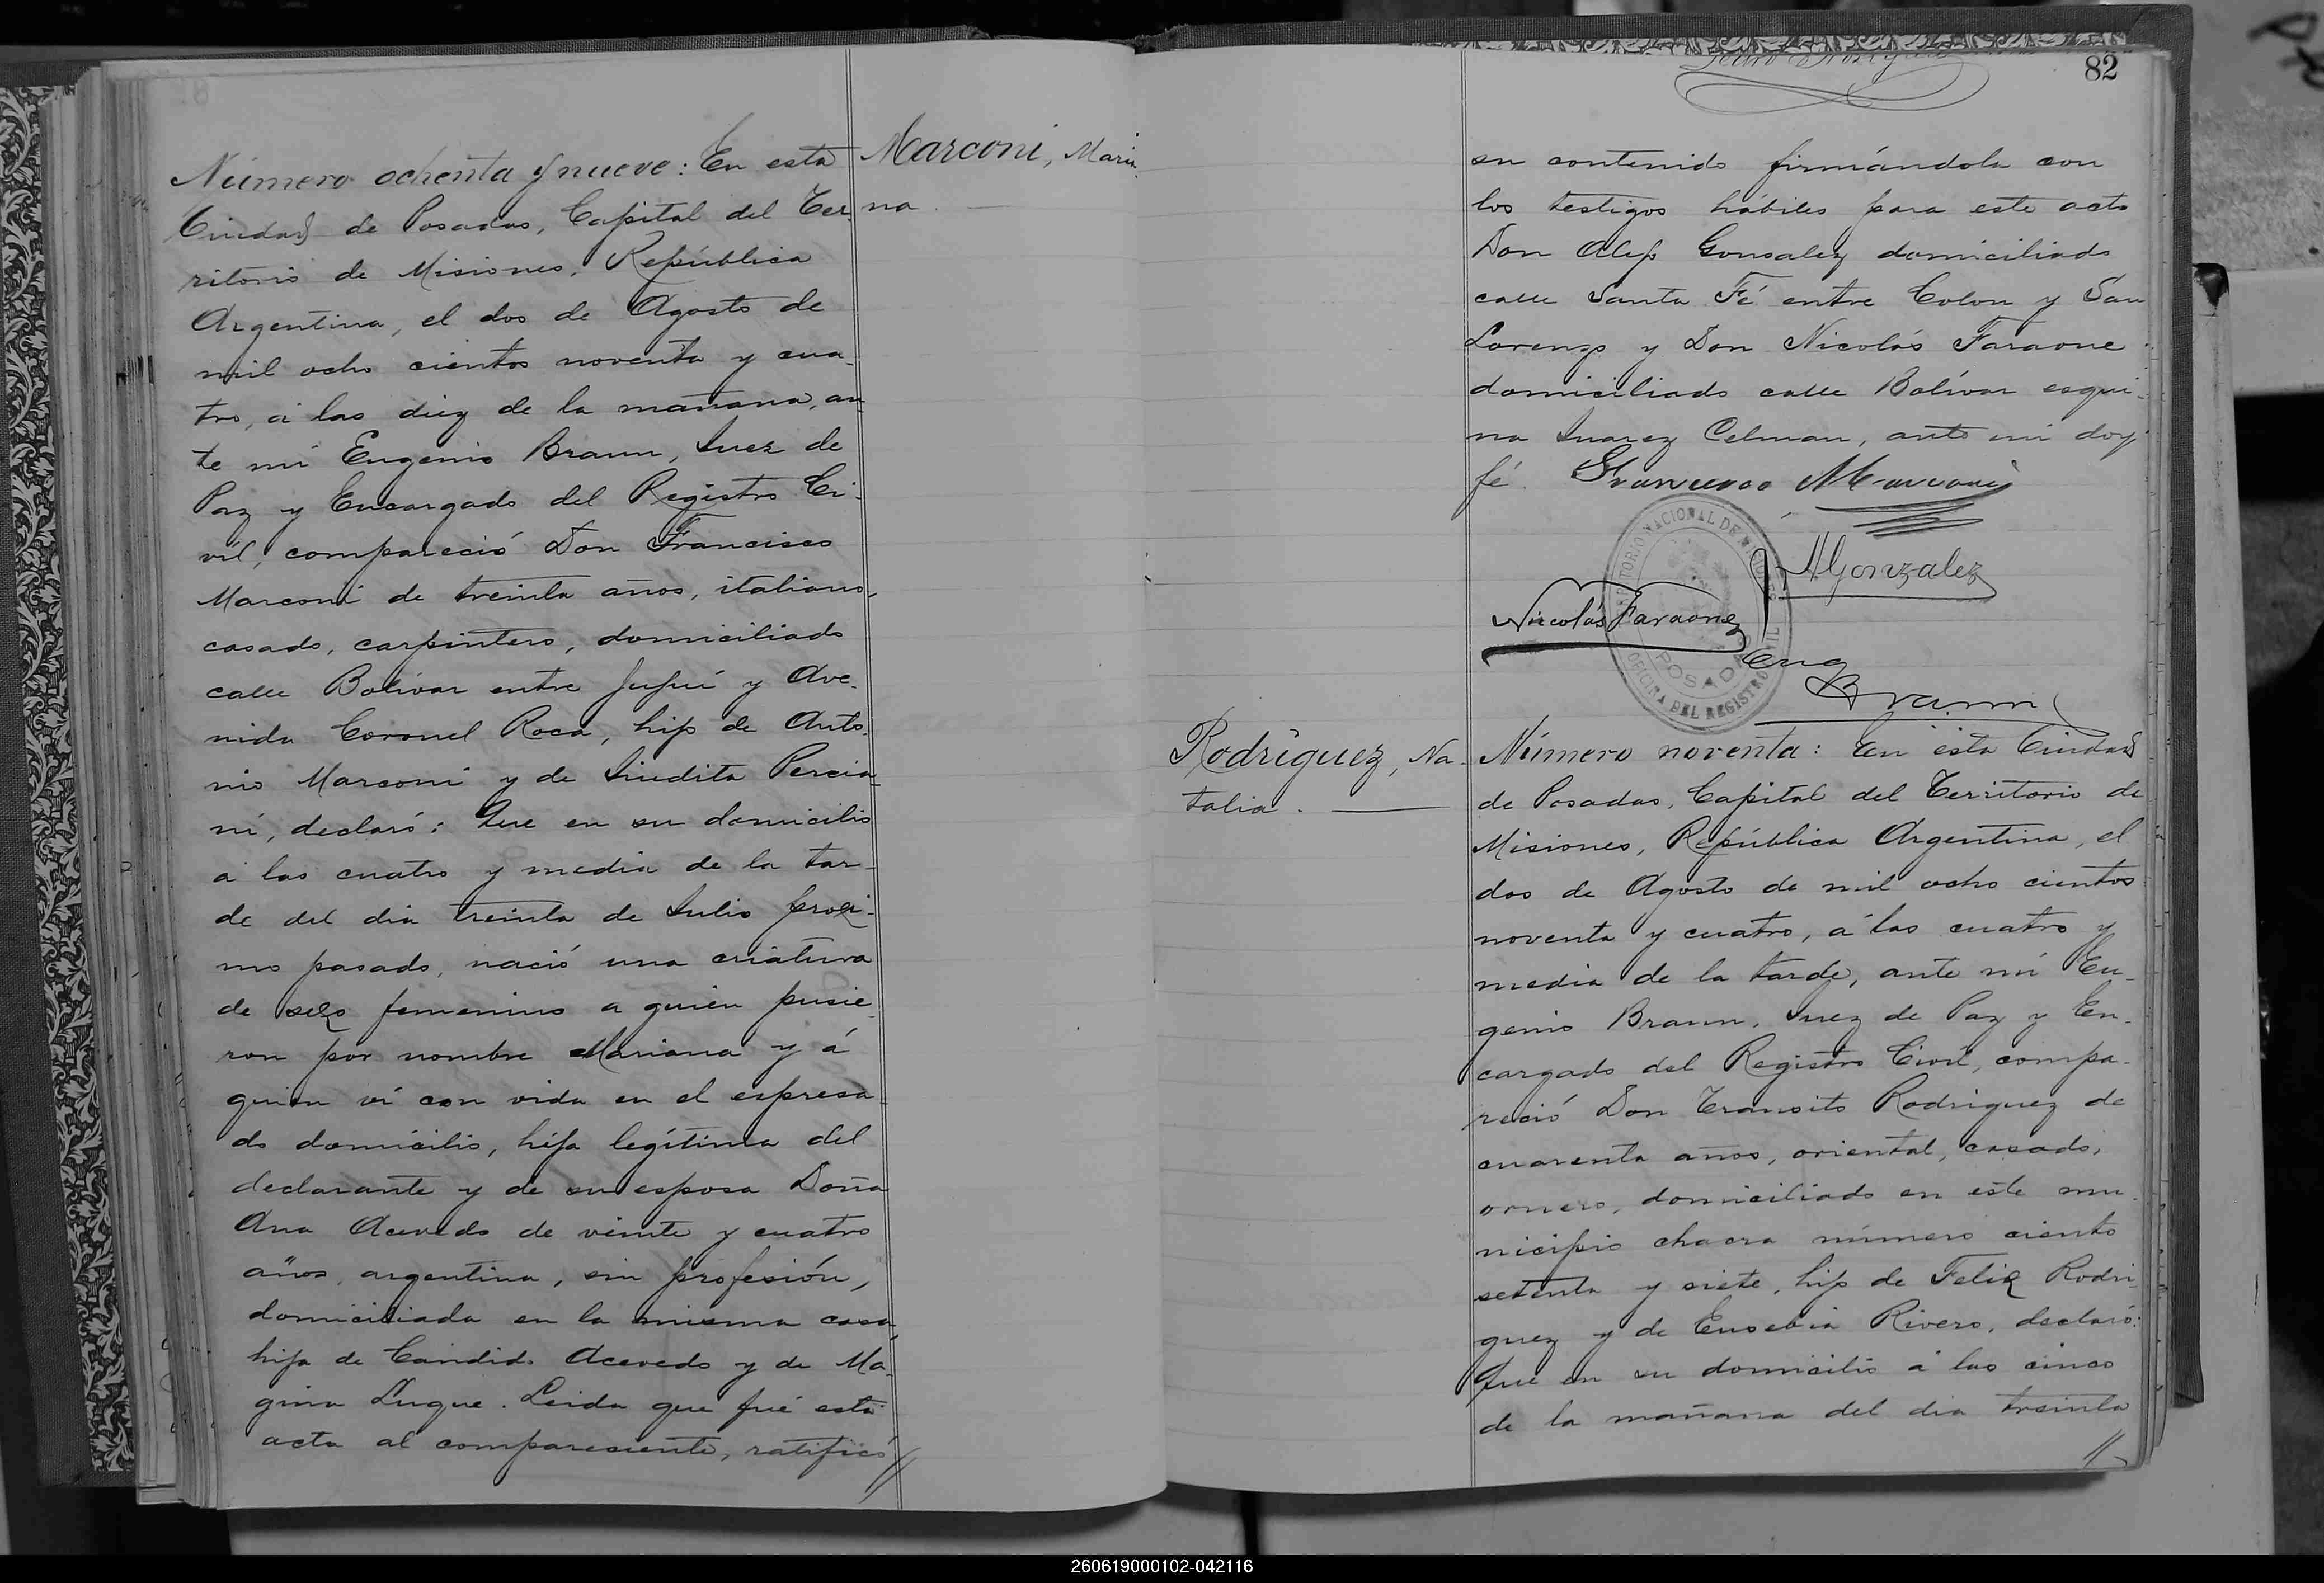 Número ochenta y nueve: En esta
Ciudad de Posadas, Capital del Ter
ritorio de Misiones, República
Argentina, el dos de Agosto de
mil ocho cientos noventa y cua-
tro, á las diez de la mañana, an
te mí Eugenio Braun, Juez de
Paz y Encargado del Registro Ci-
vil, compareció Don Francisco
Marconi de treinta años, italiano,
casado, carpintero, domiciliado
calle Bolívar entre Jujuí y Ave-
nida Coronel Roca, hijo de Anto-
nio Marconi y de Percia
ni, declaró: Que en su domicilio
á las cuatro y media de la tar-
de del dia treinta de Julio proxi-
mo pasado, nació una criatura
de sexo femenino a quien pusie-
ron por nombre Mariana y á
quien ví con vida en el espresa-
do domicilio, hija legítima del
declarante y de su esposa Doña
Ana Acevedo de veinte y cuatro
años, argentina, sin profesión,
domiciliada en la misma casa,
hija de Candido Acevedo y de Ma-
gina Luque. Leida que fué esta
acta al compareciente, ratificó
//
Marconi, Maria
na.
82
su contenido firmándola con
los testigos hábiles para este acto
Don Alejo Gonsalez domiciliado
calle Santa Fé entre Colon y San
Lorenzo y Don Nicolás Faraone
domiciliado calle Bolívar esqui-
na Juarez Celman, ante mi doy
fé. Francesco Marconi
AGonzalez
Nicolás Faraone
TERRITORIO NACIONAL DE MISIONES
POSADAS
OFICINA DEL REGISTRO CIVIL
Eug
Braun
Rodríguez, Na-
talia.
Número noventa: En esta Ciudad
de Posadas, Capital del Territorio de
Misiones, República Argentina, el
dos de Agosto de mil ocho cientos
noventa y cuatro, á las cuatro y
media de la tarde, ante mí Eu-
genio Braun, Juez de Paz y En-
cargado del Registro Civil, compa-
reció Don Transito Rodriguez de
cuarenta años, oriental, casado,
ornero, domiciliado en este mu-
nicipio chacra número ciento
setenta y siete, hijo de Felix Rodri-
guez y de Eusebia Rivero, declaró:
Que en su domicilio á las cinco
de la mañana del dia treinta
//
260619000102-042116